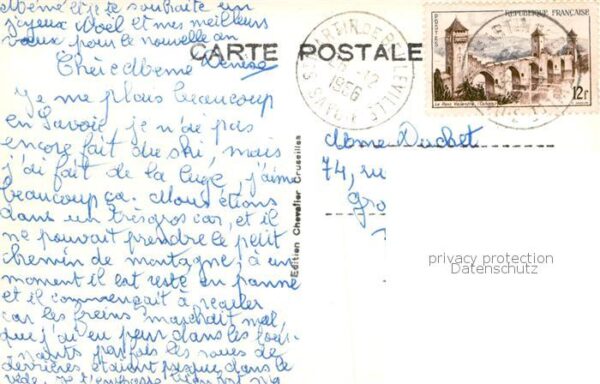 Mémé et je te souhaite un
joyeux Noël et mes meilleurs
vœux pour le nouvelle an
CARTE POSTALE
Chère Mémé Denise
je me plais beaucoup
en Savoie je n'ai pas
encore fait du ski, mais
j'ai fait de la luge, j'aime
beaucoup ça. Nous étions
dans un très gros car, et il
ne pouvait prendre le petit
chemin de montagne, à un
moment il est resté en panne
et il commençait à reculer
car les freins marchait mal,
que j'ai eu peur dans les tour-
nants parfois les roues de
derrières étaient presque dans le
vide. Je t'embrasse bien fort
Edition Chevalier Cruseilles
ST MARTIN DE BELLEVILLE
12
1956
SAVOIE
REPUBLIQUE FRANÇAISE
POSTES
Le Pont Valentré - Cahors
12f
Mme Duchet
74, ru
Gro
privacy protection
Datenschutz